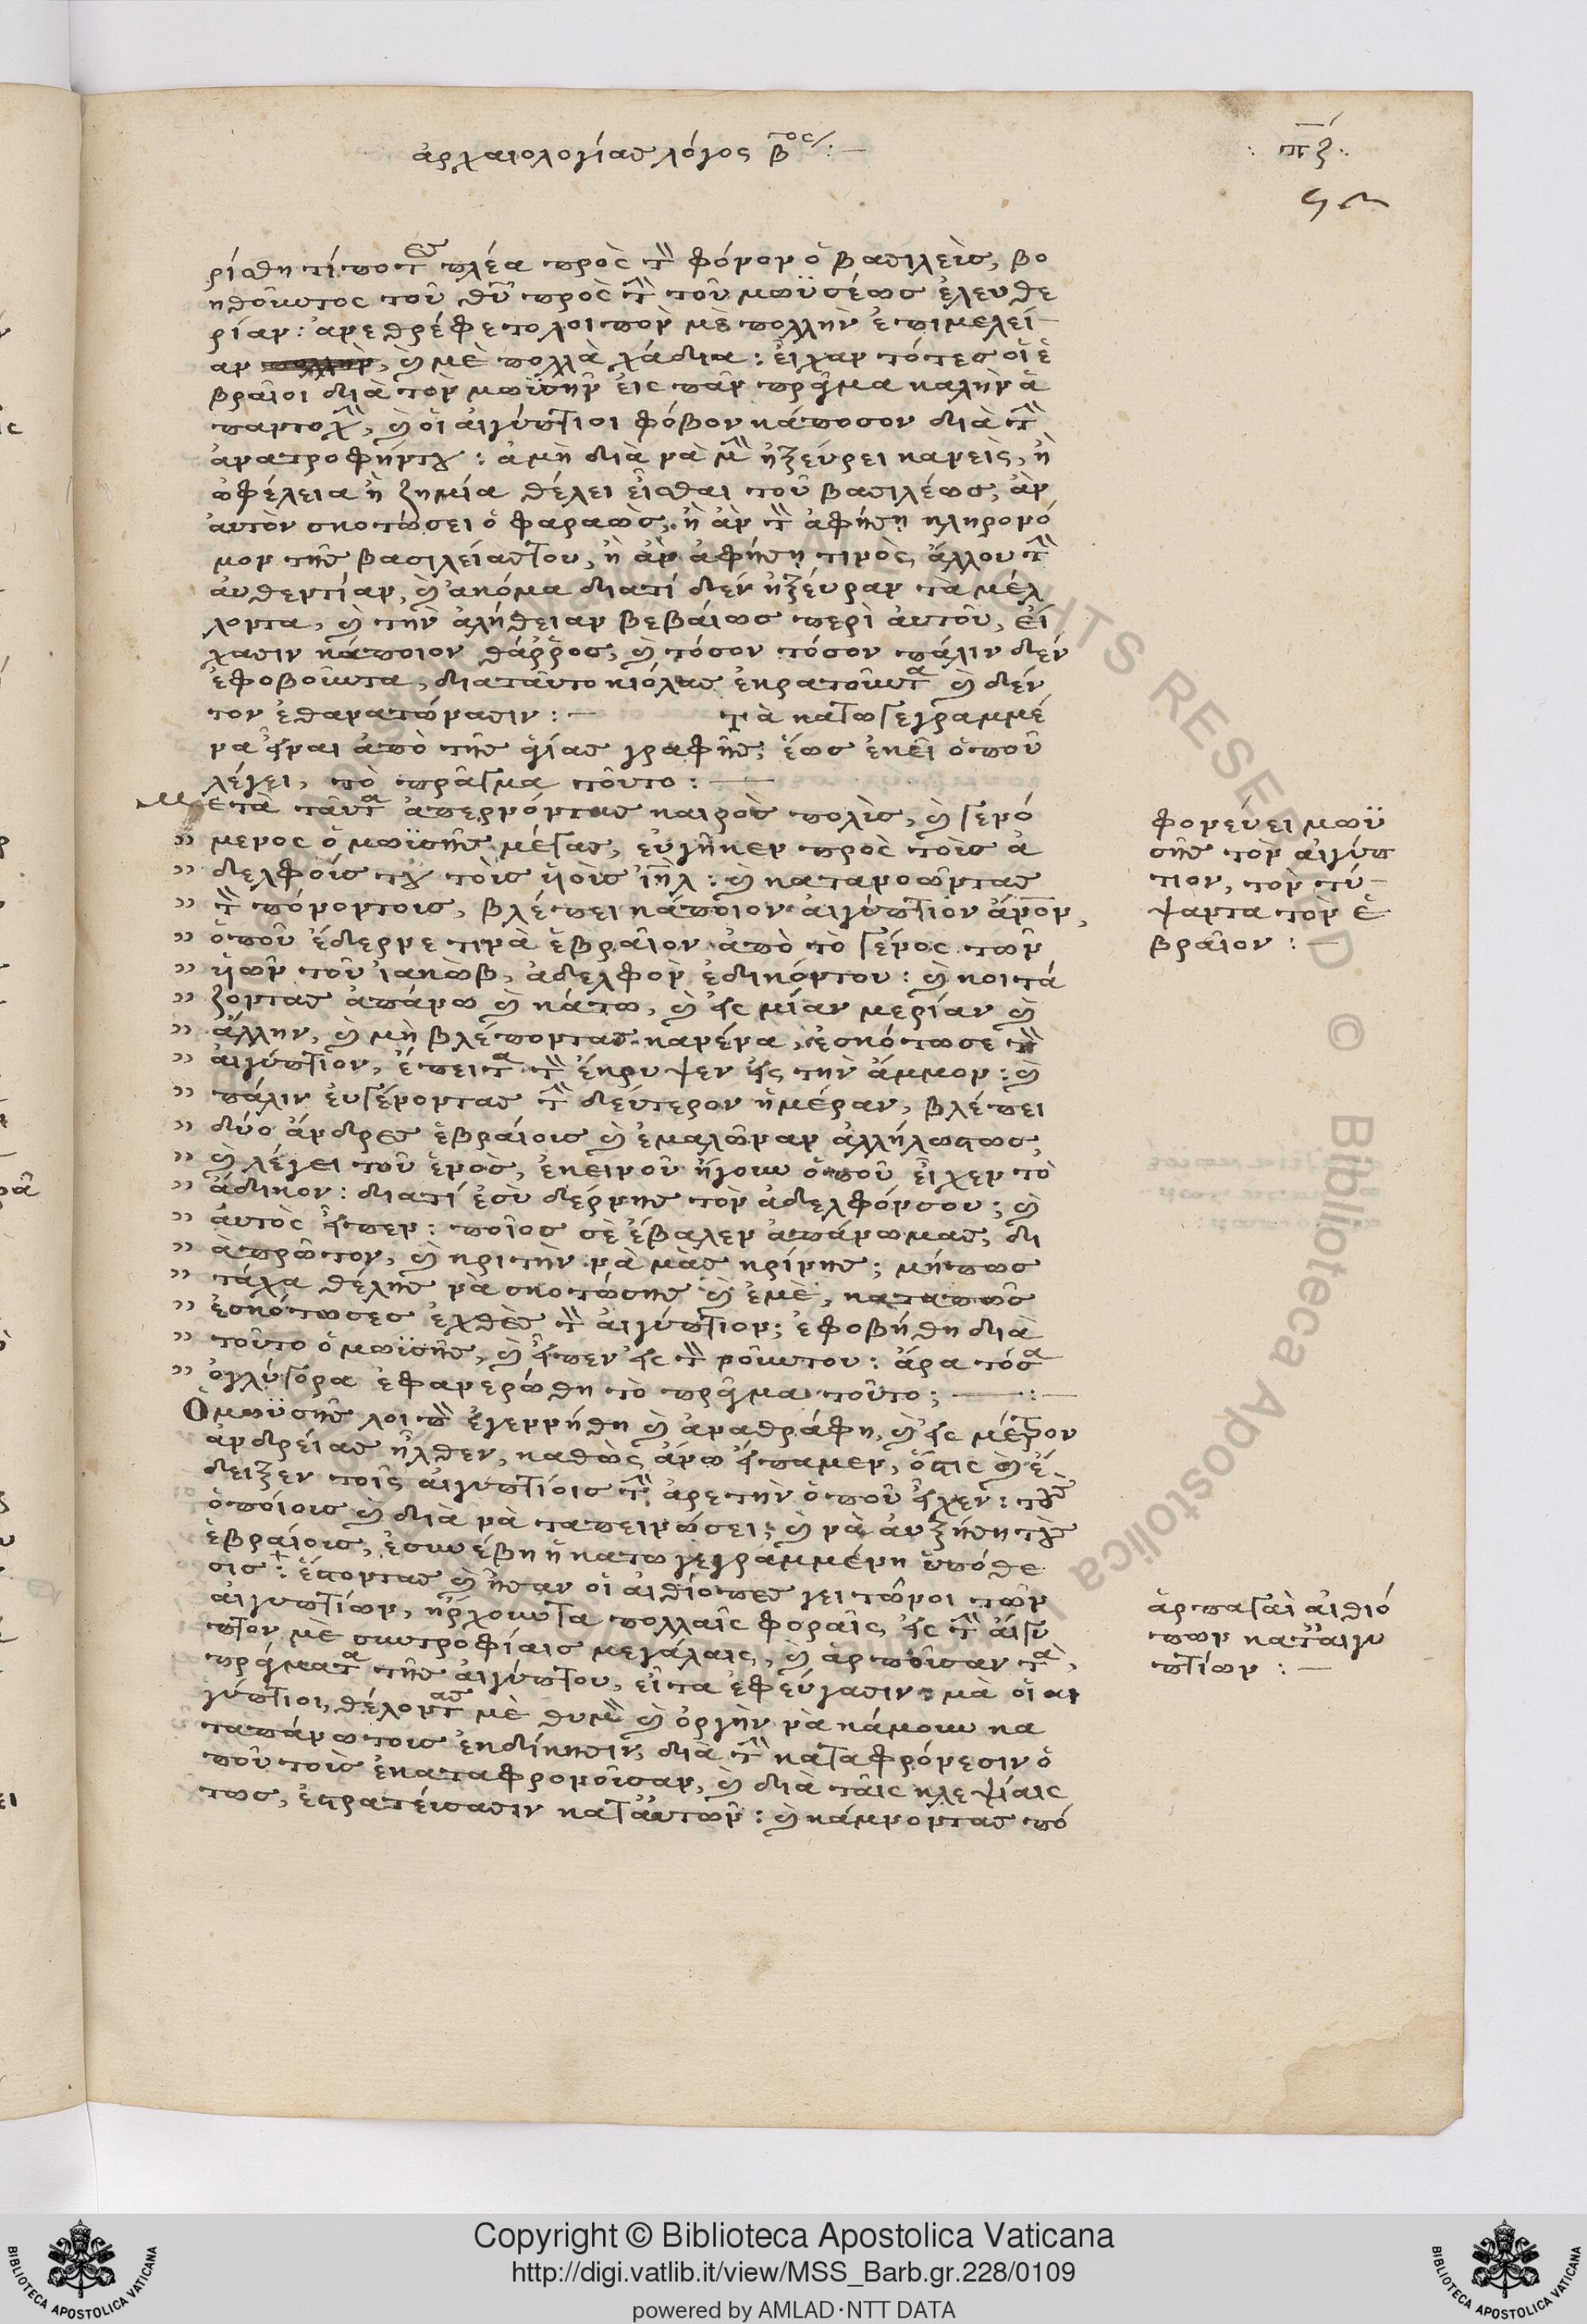 ἀρχαιολογίας λόγος β^ος:—
πζ
ρίσθη τίποτες πλέα πρὸς τὸν φόνον ὁ βασιλεὺς, βο
ηθοῦντος τοῦ θῦ πρὸς τὴν τοῦ μωϋσέως ἐλευθε
ρίαν: ἀνεθρέφετο λοιπὸν μὲ πολλὴν ἐπιμελεί
αν, καὶ μὲ πολλὰ χάδια: εἶχαν τότες οἱ ἑ
βραῖοι διὰ τὸν μωϋσῆν εἰς πᾶν πρᾶγμα καλὴν ἀ
παντοχὴν, καὶ οἱ αἰγύπτιοι φόβον κάποσον διὰ τὴν
ἀνατροφήντου: ἀμὴ διὰ νὰ μὴν ἠξεύρει κανεὶς, ἢ
ὠφέλεια ἢ ζημία θέλει εἶσθαι τοῦ βασιλέως, ἂν
αὐτὸν σκοτώσει ὁ φαραὼς, ἢ ἂν τὸν ἀφήσῃ κληρονό
μον τῆς βασιλείαςτου, ἢ ἂν ἀφήσῃ τινὸς ἄλλου τὴν
αὐθεντίαν, καὶ ἀκόμα διατί δὲν ἠξεύραν τὰ μέλ
λοντα, καὶ τὴν ἀλήθειαν βεβαίως περὶ αὐτοῦ, εἴ
χασιν κάποιον θάρρος, καὶ τόσον τόσον πάλιν δὲν
ἐφοβοῦντα, διαταῦτο κιόλας ἐκρατοῦντα καὶ δὲν
τον ἐθανατώνασιν:— Τὰ κάτω γεγραμμέ
να εἶναι ἀπὸ τῆς ἁγίας γραφῆς, ἕως ἐκεῖ ὁποῦ
λέγει, τὸ πρᾶγμα τοῦτο:—
Μετὰ ταῦτα ἀπερνόντας καιρὸς πολὶς, καὶ γενό
" μενος ὁ μωϋσῆς μέγας, εὐγῆκεν πρὸς τοὺς ἀ
" δελφούς του τοὺς υἱοὺς ἰηλ: καὶ κατανοῶντας
" τὸν πόνοντους, βλέπει κάποιον αἰγύπτιον ἄνον,
" ὁποῦ ἔδερνε τινὰ ἑβραῖον ἀπὸ τὸ γένος τῶν
" υἱῶν τοῦ ἰακὼβ, ἀδελφὸν ἐδικόντου: καὶ κοιτά
" ζοντας ἀπάνω καὶ κάτω, καὶ εἰς μίαν μερίαν καὶ
" ἄλλην, καὶ μὴ βλέποντας κανένα, ἐσκότωσε τὸν
" αἰγύπτιον, ἔπειτα τὸν ἔκρυψεν εἰς τὴν ἄμμον: καὶ
" πάλιν εὐγένοντας τὴν δεύτερον ἡμέραν, βλέπει
" δύο ἄνδρες ἑβραίοις καὶ ἐμαλῶναν ἀλλήλωςτως,
" καὶ λέγει τοῦ ἑνὸς, ἐκεινοῦ ἤγουν ὁποῦ εἶχεν τὸ
" ἄδικον: διατί ἐσὺ δέρνης τὸν ἀδελφόνσου; καὶ
" αὐτὸς εἶπεν: ποῖος σὲ ἔβαλεν ἀπάνωμας, δι
" ὰ πρῶτον, καὶ κριτὴν νὰ μᾶς κρίνης; μήπως
" τάχα θέλης νὰ σκοτώσης καὶ ἐμὲ, καταπῶς
" ἐσκότωσες ἐχθὲς τὸν αἰγύπτιον; ἐφοβήθη διὰ
" τοῦτο ὁ μωϋσῆς, καὶ εἶπεν εἰς τὸν νοῦντου: ἄρα τόσα
" ὀγλύγορα ἐφανερώθη τὸ πρᾶγμα τοῦτο; —:—
Ὁ μωϋσῆς λοιπὸν ἐγεννήθη καὶ ἀναθράφη, καὶ εἰς μέτρον
ἀνδρείας ἦλθεν, καθὼς ἄνω εἴπαμεν, ὅστις καὶ ἔ
δειξεν τοῖς αἰγυπτίοις τὴν ἀρετὴν ὁποῦ εἶχεν: τοὺς
ὁποίοις καὶ διὰ νὰ ταπεινώσει, καὶ νὰ αὐξήσῃ τοὺς
ἑβραίοις, ἐσυνέβη ἡ κάτω γεγραμμένη ὑπόθε
σις: ἔστοντας καὶ ἦσαν οἱ αἰθίοπες γειτῶνοι τῶν
αἰγυπτίων, ἠρχοῦντα πολλαῖς φοραῖς εἰς τὴν αἴγυ
πτον μὲ συντροφίαις μεγάλαις, καὶ ἁρποῦσαν τὰ
πράγματα τῆς αἰγύπτου, εἶτα ἐφεύγασιν: μὰ οἱ αἰ
γύπτιοι, θέλοντας μὲ θυμὸν καὶ ὀργὴν νὰ κάμουν κα
ταπάνωτους ἐκδίκησιν, διὰ τὴν καταφρόνεσιν ὁ
ποῦ τοὺς ἐκαταφρονοῦσαν, καὶ διὰ ταῖς κλεψίαις
τως, ἐστρατεύσασιν κατ' αὐτῶν: καὶ κάμνοντας πό
φονεύει μωϋ
σῆς τὸν αἰγύπ
τιον, τὸν τύ
ψαντα τὸν ἑ
βραῖον:—
ἁρπαγαὶ αἰθιό
πων κατ' αἰγυ
πτίων:—
Copyright © Biblioteca Apostolica Vaticana
http://digi.vatlib.it/view/MSS_Barb.gr.228/0109
powered by AMLAD·NTT DATA